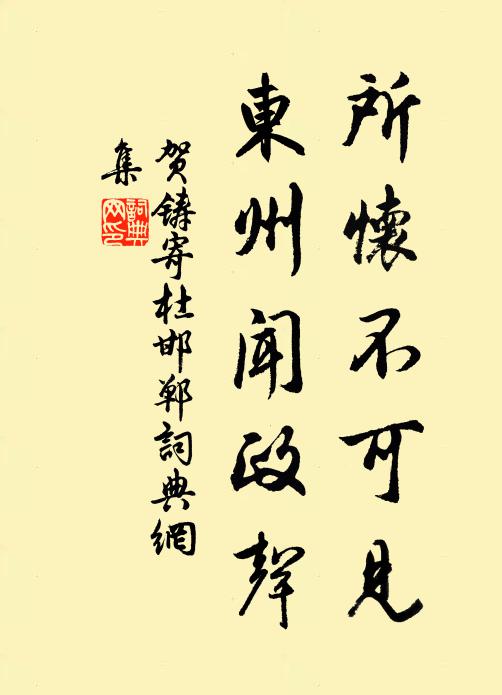 所懷不可見
東州聞政聲
賀鑄寄杜邯鄲詞典網
集
詞典
网印